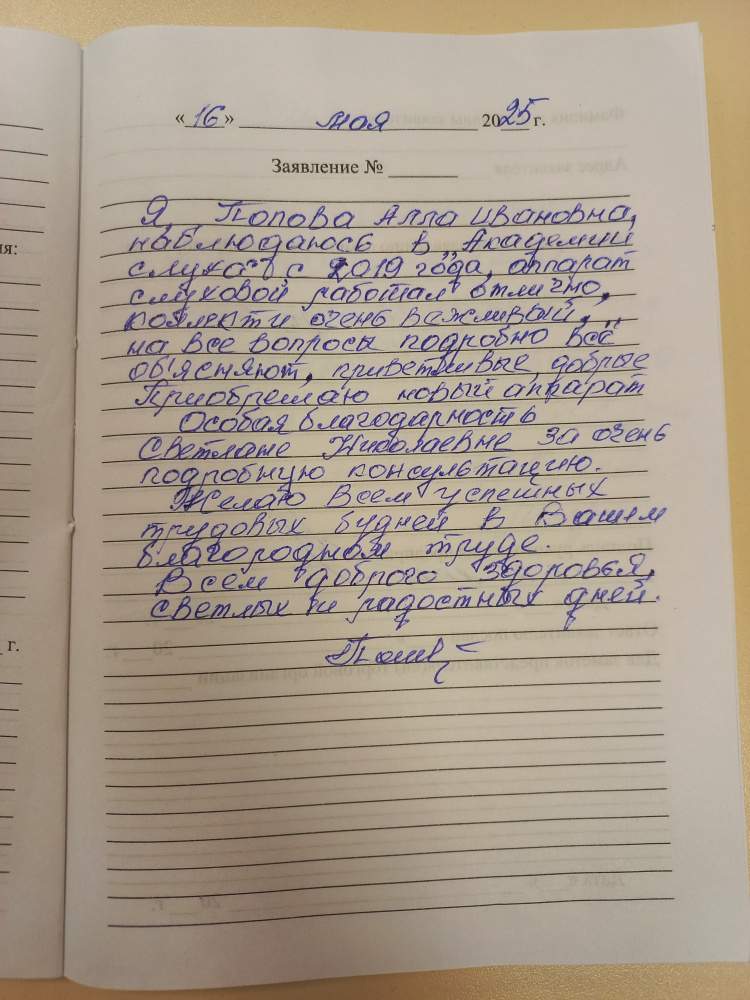 «16» мая 2025 г.
Заявление №
Я, Попова Алла Ивановна,
наблюдаюсь в „Академии
слуха" с 2019 года, аппарат
слуховой работал отлично,
коллекти очень вежливый,
на все вопросы подробно всё
об'ясняют, приветливые, добрые
Приобретаю новый аппарат
Особая благодарность
Светлане Николаевне за очень
подробную консультацию.
Желаю всем успешных
трудовых будней в Вашем
благородном труде.
Всем доброго здоровья,
светлых и радостных дней.
ия:
г.